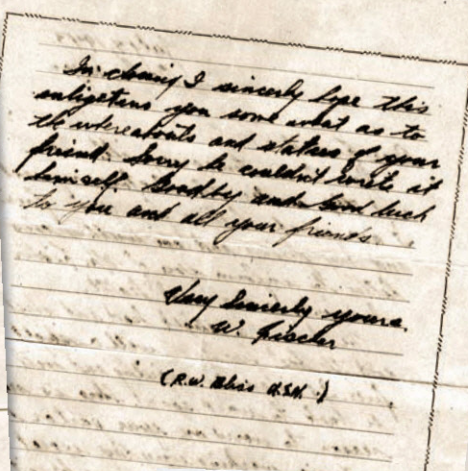 In closing I sincerly hope this
enligetens you some what as to
the whereabouts and status of your
friend. Sorry he couldn't write it
himself. Goodby and Good luck
to you and all your friends.
Very Sincerly yours.
W.
(R.W. Bliss U.S.N.)